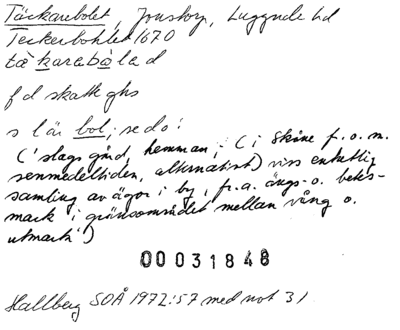 Täckarebolet, Jonstorp, Luggude hd
Teckerbohlet 1670
tä`karebòlad
f d skatte ghs
s lär bol, se do:
('slags gård, hemman; (i Skåne fr.o.m.
senmedeltiden, alternativt) viss enhetlig
samling av ägor i by, fr.a. ängs- o. betes-
mark i gränsområdet mellan vång o.
utmark')
00031848
Hallberg SOÅ 1972:57 med not 31